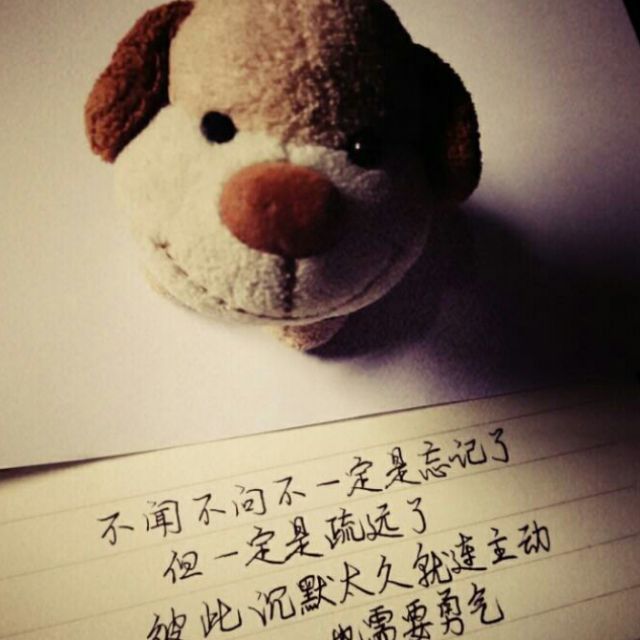 不闻不问不一定是忘记了
但一定是疏远了
彼此沉默太久就连主动
也需要勇气